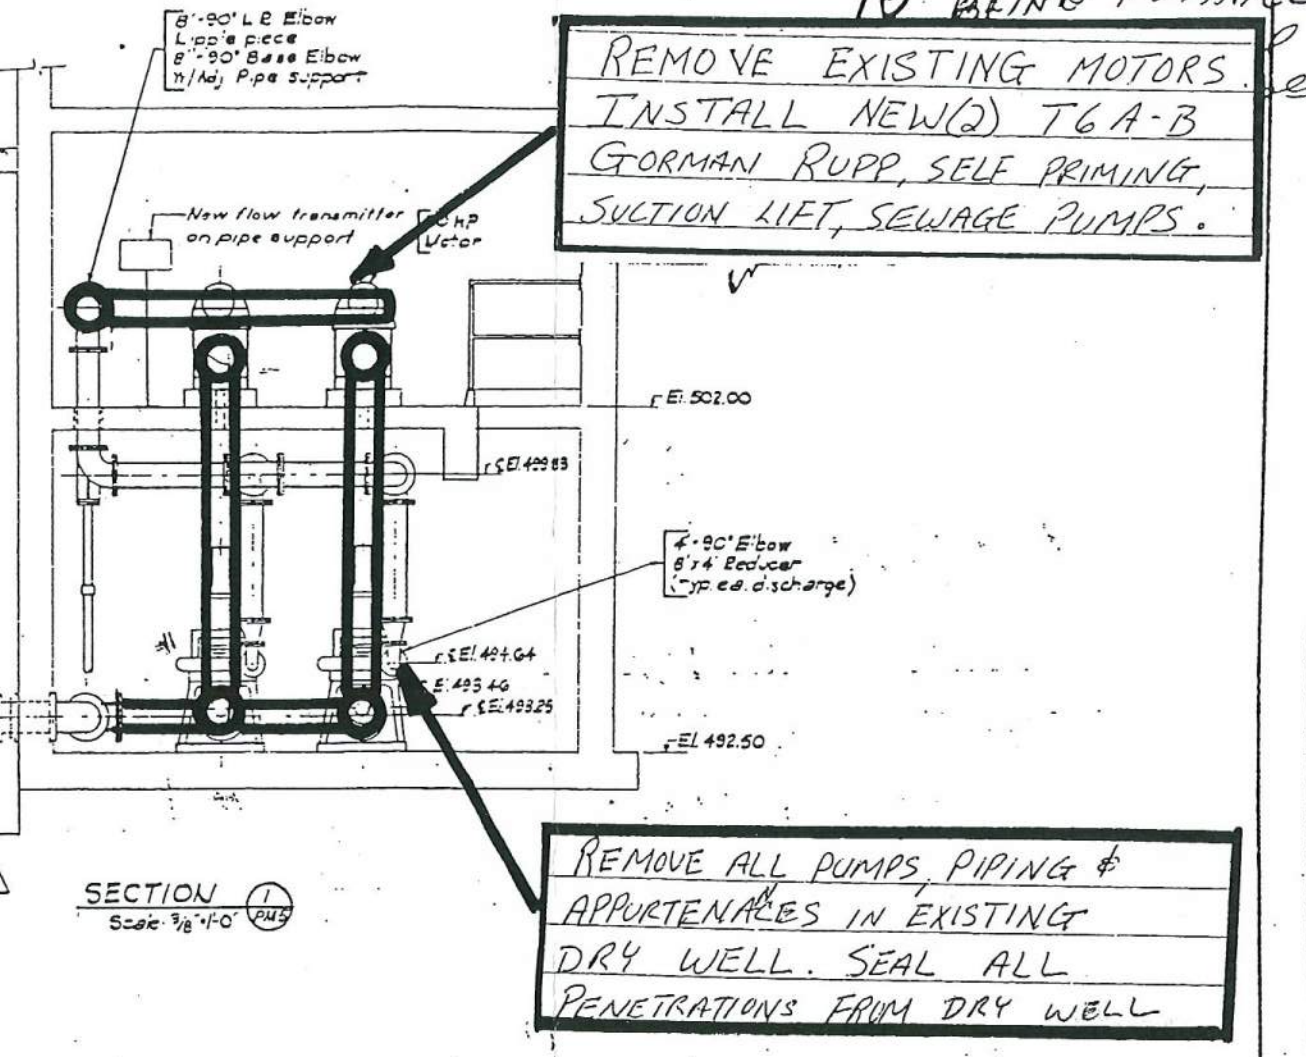 8"-90° L R Elbow
piece
8"-90° Base Elbow
w/Adj Pipe support
REMOVE EXISTING MOTORS.
INSTALL NEW(2) T6A-B
GORMAN RUPP, SELF PRIMING,
SUCTION LIFT, SEWAGE PUMPS.
New flow transmitter
on pipe support
HP
Motor
El. 502.00
℄ El. 499.83
4"-90° Elbow
8"x4" Reducer
(Typ. ea. discharge)
℄ El. 494.64
El. 493.46
℄ El. 493.25
El. 492.50
SECTION 1
Scale: 3/8"=1'-0" PM5
REMOVE ALL PUMPS, PIPING &
APPURTENANCES IN EXISTING
DRY WELL. SEAL ALL
PENETRATIONS FROM DRY WELL